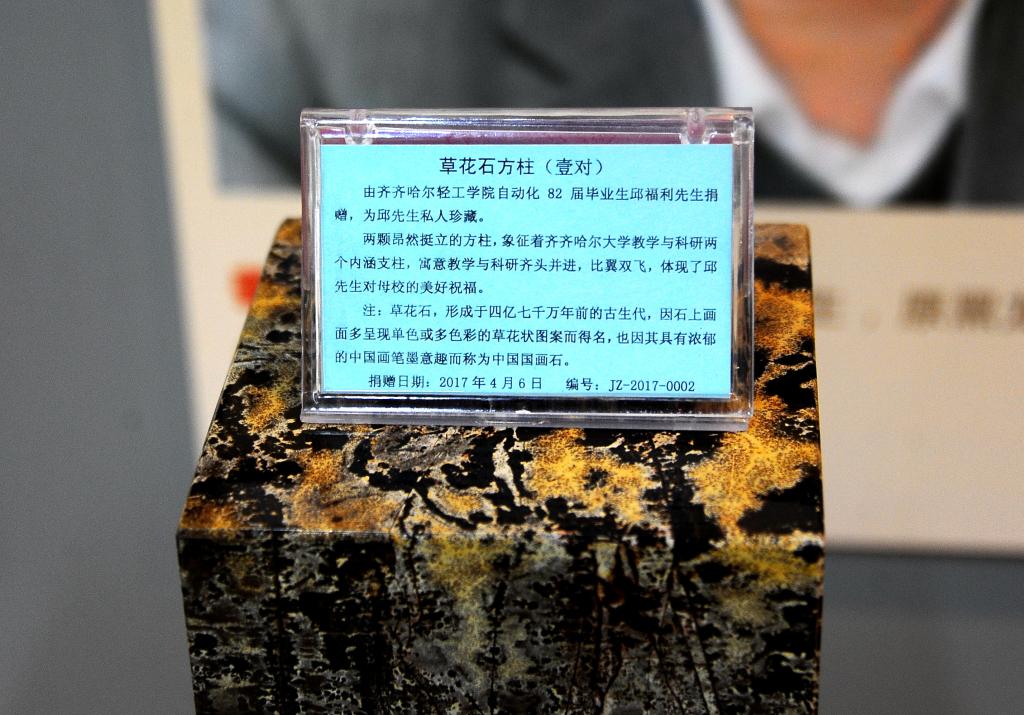 草花石方柱（壹对）
由齐齐哈尔轻工学院自动化 82 届毕业生邱福利先生捐
赠，为邱先生私人珍藏。
两颗昂然挺立的方柱，象征着齐齐哈尔大学教学与科研两
个内涵支柱，寓意教学与科研齐头并进，比翼双飞，体现了邱
先生对母校的美好祝福。
注：草花石，形成于四亿七千万年前的古生代，因石上画
面多呈现单色或多色彩的草花状图案而得名，也因其具有浓郁
的中国画笔墨意趣而称为中国国画石。
捐赠日期：2017 年 4 月 6 日 编号：JZ-2017-0002